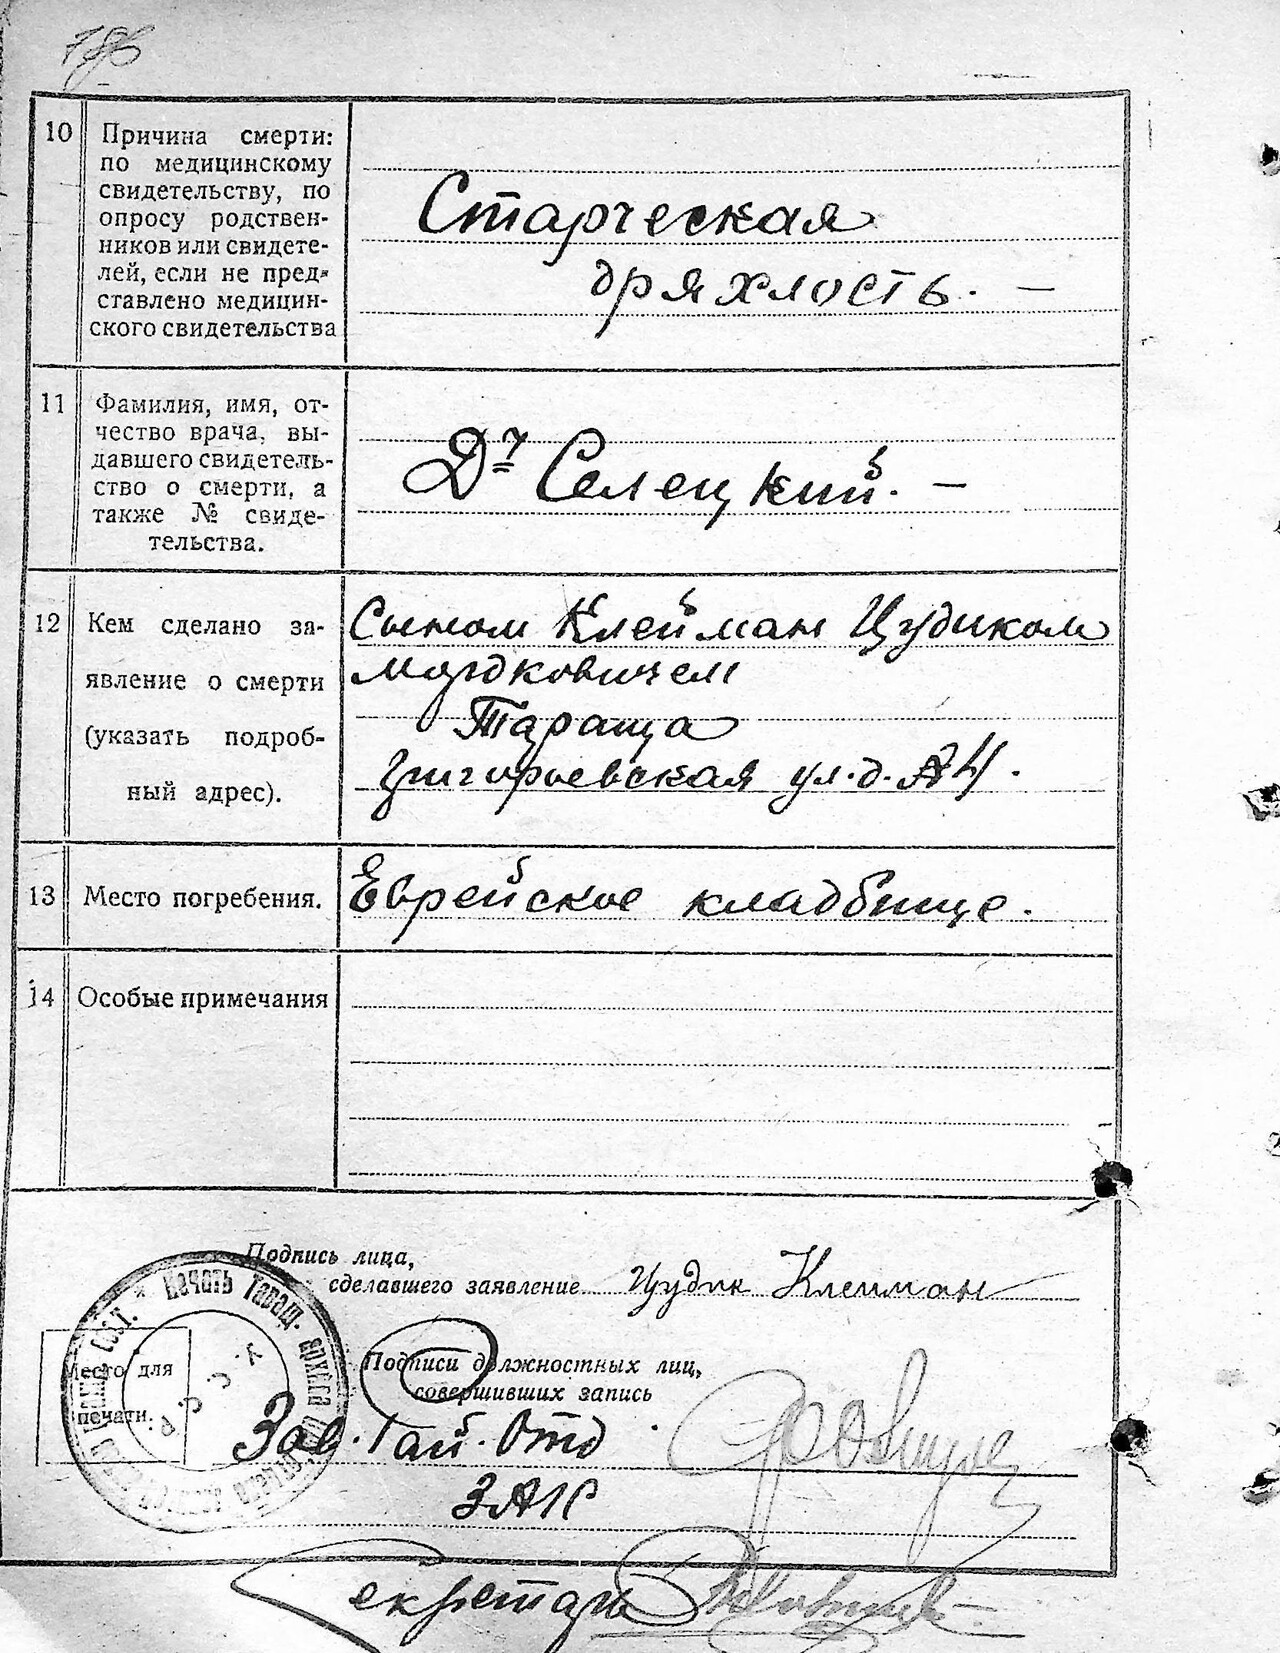 10
Причина смерти:
по медицинскому
свидетельству, по
опросу родствен-
ников или свидете-
лей, если не пред-
ставлено медицин-
ского свидетельства
Старческая
дряхлость. —
11
Фамилия, имя, от-
чество врача, вы-
давшего свидетель-
ство о смерти, а
также № свиде-
тельства.
Д-ъ Селецкий. —
12
Кем сделано за-
явление о смерти
(указать подроб-
ный адрес).
Сыном Клейман Цудиком
Мордковичем
Тараща
Григорьевская ул. д. №4.
13
Место погребения.
Еврейское кладбище.
14
Особые примечания
Подпись лица,
сделавшего заявление
Цудик Клейман
Печать Таращ.
У.С.С.Р.
Место для
печати.
Подписи должностных лиц,
совершивших запись
Зав. Рай. Отд
ЗАГС
Секретарь